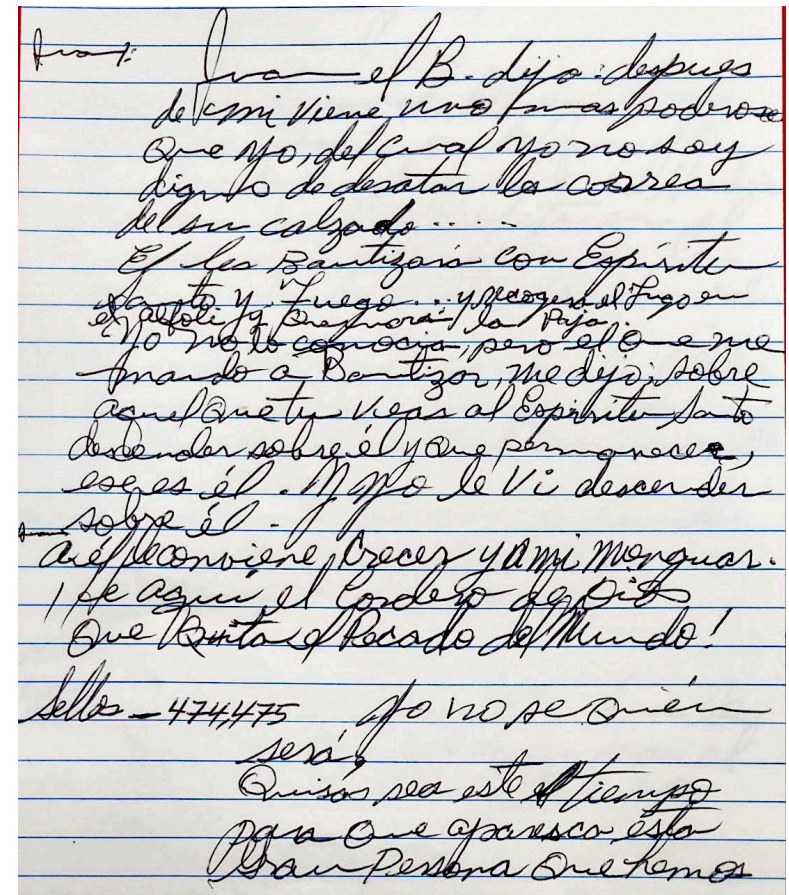 Juan el B. dijo: despues
de mi viene uno mas poderoso
Que yo, del cual yo no soy
digno de desatar la correa
del su calzado.....
El les Bautizará con Espíritu
Santo y Fuego... y recogera el Trigo en
el alfolí y Quemará la Paja.
Yo no lo conocia, pero el Que me
mando a Bautizar, me dijo: sobre
aquel Que tu veas al Espíritu Santo
descender sobre él y Que permanece,
ese es él. Y Yo le Vi descender
sobre él.
A él le conviene Crecer y a mi menguar.
¡He aquí el Cordero de Dios
Que Quita el Pecado del Mundo!
Sellos - 474,475 Yo no se Quién
será,
Quisás sea este el tiempo
para Que aparesca ésta
Gran Persona Que hemos